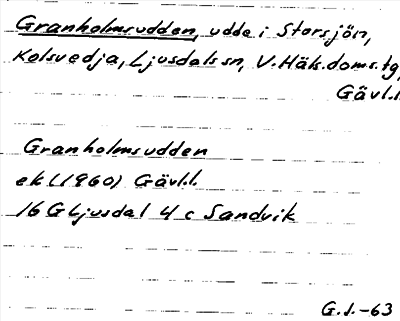 Granholmsudden, udde i Storsjön,
Kolsvedja, Ljusdals sn, V. Häls. doms. tg,
Gävl.l.
Granholmsudden
ek (1960) Gävl.l.
16 G Ljusdal 4 c Sandvik
G.J.-63